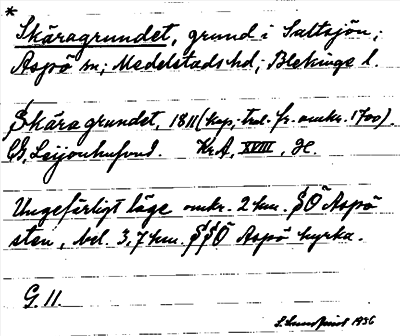 *
Skäragrundet, grund i Saltsjön;
Aspö sn; Medelstads hd; Blekinge l.
Skäragrundet, 1811 (kop, trol. fr. omkr. 1700).
CG, Leijonhufvud. KrA, XVIII, H.
Ungefärligt läge omkr. 2 km. SÖ Aspö
sten, bel. 3,7 km. SSÖ Aspö kyrka.
G. 11.
S. Lundqvist 1936